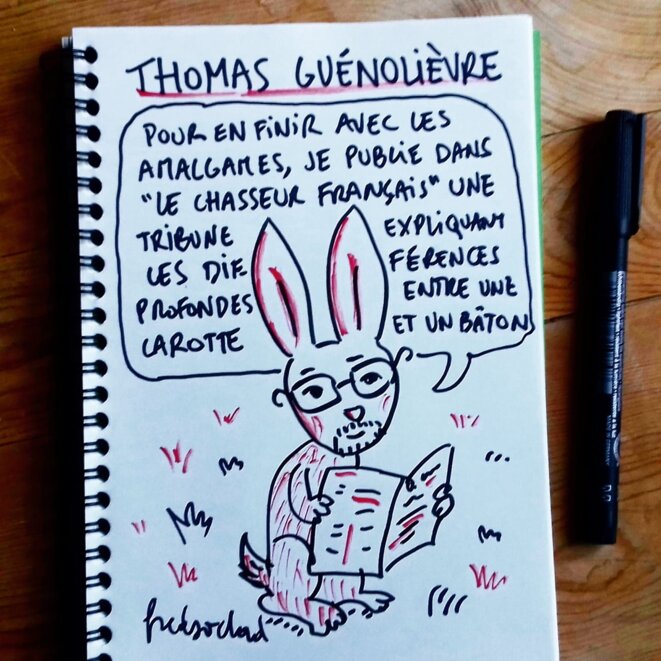 THOMAS GUÉNOLIÈVRE
POUR EN FINIR AVEC LES
AMALGAMES, JE PUBLIE DANS
"LE CHASSEUR FRANÇAIS" UNE
TRIBUNE EXPLIQUANT
LES DIF FÉRENCES
PROFONDES ENTRE UNE
CAROTTE ET UN BÂTON